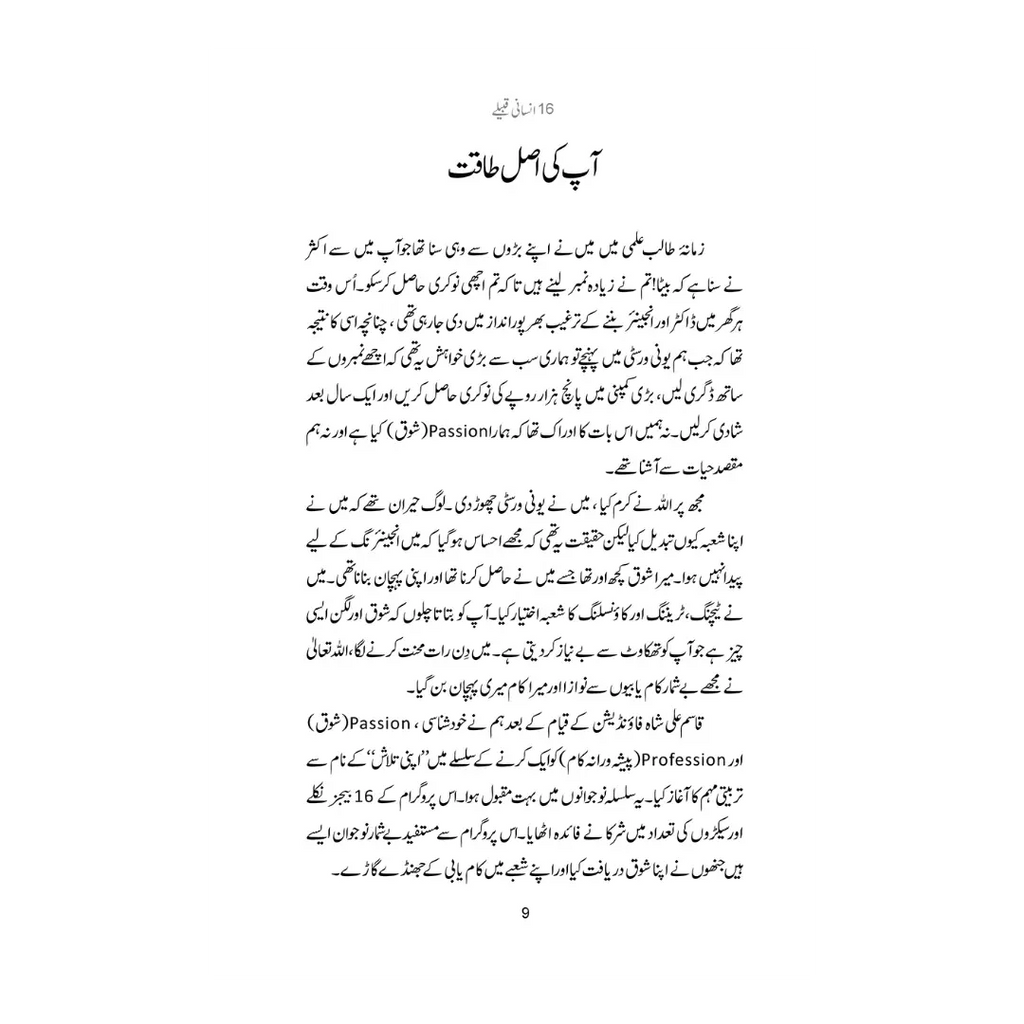 16 انسانی قبیلے
آپ کی اصل طاقت
زمانۂ طالب علمی میں میں نے اپنے بڑوں سے وہی سنا تھا جو آپ میں سے اکثر
نے سنا ہے کہ بیٹا! تم نے زیادہ نمبر لینے ہیں تاکہ تم اچھی نوکری حاصل کرسکو۔ اُس وقت
ہر گھر میں ڈاکٹر اور انجینئر بننے کے ترغیب بھرپور انداز میں دی جا رہی تھی، چنانچہ اسی کا نتیجہ
تھا کہ جب ہم یونی ورسٹی میں پہنچے تو ہماری سب سے بڑی خواہش یہ تھی کہ اچھے نمبروں کے
ساتھ ڈگری لیں، بڑی کمپنی میں پانچ ہزار روپے کی نوکری حاصل کریں اور ایک سال بعد
شادی کرلیں۔ نہ ہمیں اس بات کا ادراک تھا کہ ہمارا Passion (شوق) کیا ہے اور نہ ہم
مقصد حیات سے آشنا تھے۔
مجھ پر اللہ نے کرم کیا، میں نے یونی ورسٹی چھوڑ دی۔ لوگ حیران تھے کہ میں نے
اپنا شعبہ کیوں تبدیل کیا لیکن حقیقت یہ تھی کہ مجھے احساس ہوگیا کہ میں انجینئرنگ کے لیے
پیدا نہیں ہوا۔ میرا شوق کچھ اور تھا جسے میں نے حاصل کرنا تھا اور اپنی پہچان بنانا تھی۔ میں
نے ٹیچنگ، ٹریننگ اور کاؤنسلنگ کا شعبہ اختیار کیا۔ آپ کو بتاتا چلوں کہ شوق اور لگن ایسی
چیز ہے جو آپ کو تھکاوٹ سے بے نیاز کر دیتی ہے۔ میں دِن رات محنت کرنے لگا، اللہ تعالیٰ
نے مجھے بے شمار کام یابیوں سے نوازا اور میرا کام میری پہچان بن گیا۔
قاسم علی شاہ فاؤنڈیشن کے قیام کے بعد ہم نے خود شناسی، Passion (شوق)
اور Profession (پیشہ ورانہ کام) کو ایک کرنے کے سلسلے میں ’’اپنی تلاش‘‘ کے نام سے
تربیتی مہم کا آغاز کیا۔ یہ سلسلہ نوجوانوں میں بہت مقبول ہوا۔ اس پروگرام کے 16 بیجز نکلے
اور سیکڑوں کی تعداد میں شرکا نے فائدہ اٹھایا۔ اس پروگرام سے مستفید بے شمار نوجوان ایسے
ہیں جنھوں نے اپنا شوق دریافت کیا اور اپنے شعبے میں کام یابی کے جھنڈے گاڑے۔
9